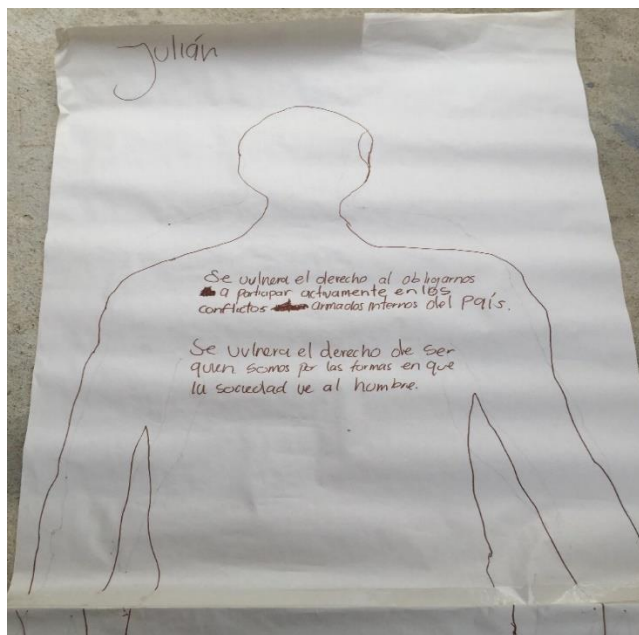 Julián
Se vulnera el derecho al obligarnos
a participar activamente en los
conflictos armados internos del país.
Se vulnera el derecho de ser
quien somos por las formas en que
la sociedad ve al hombre.